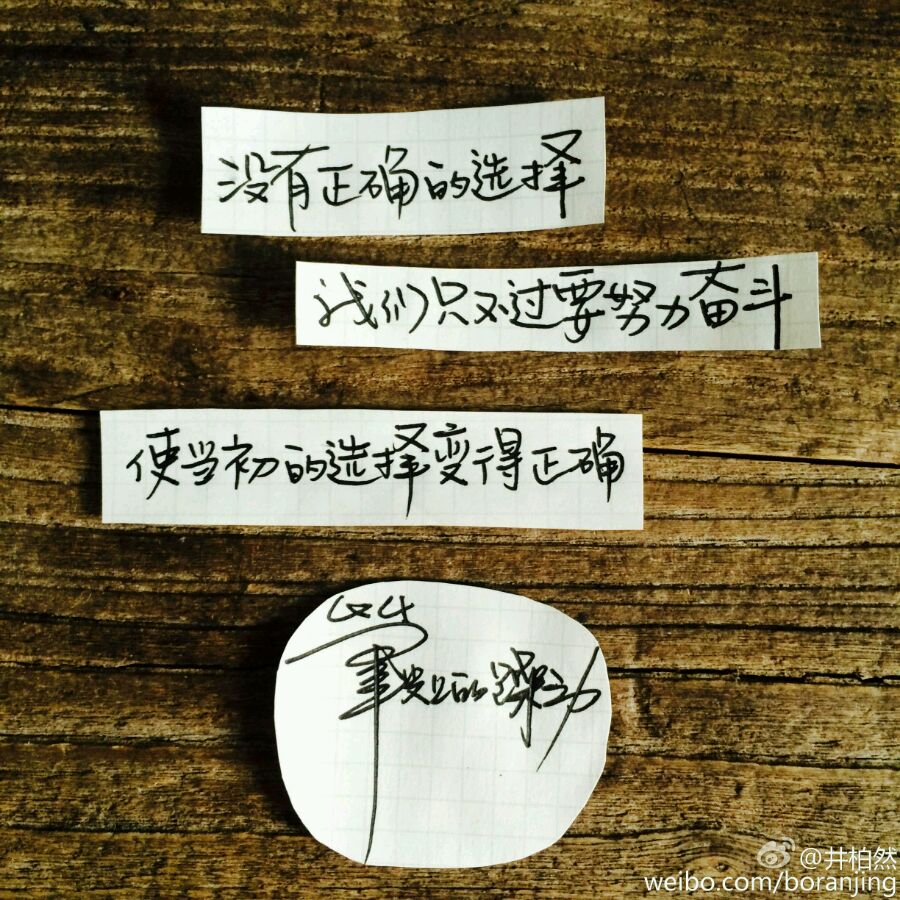 没有正确的选择
我们只不过要努力奋斗
使当初的选择变得正确
笔尖上的跳动
@井柏然
weibo.com/boranjing